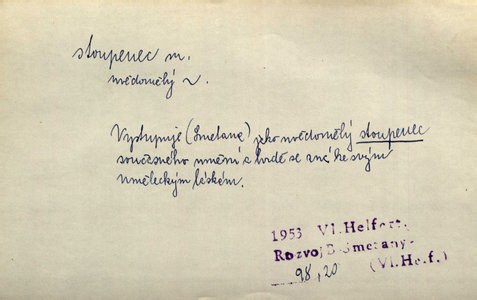 stoupenec m.
uvědomělý ~.
Vystupuje (Smetana) jako uvědomělý stoupenec
současného umění a hrdě se zná ke svým
uměleckým láskám.
1953 Vl. Helfert,
Rozvoj B. Smetany
98,20 (Vl.He.f.)